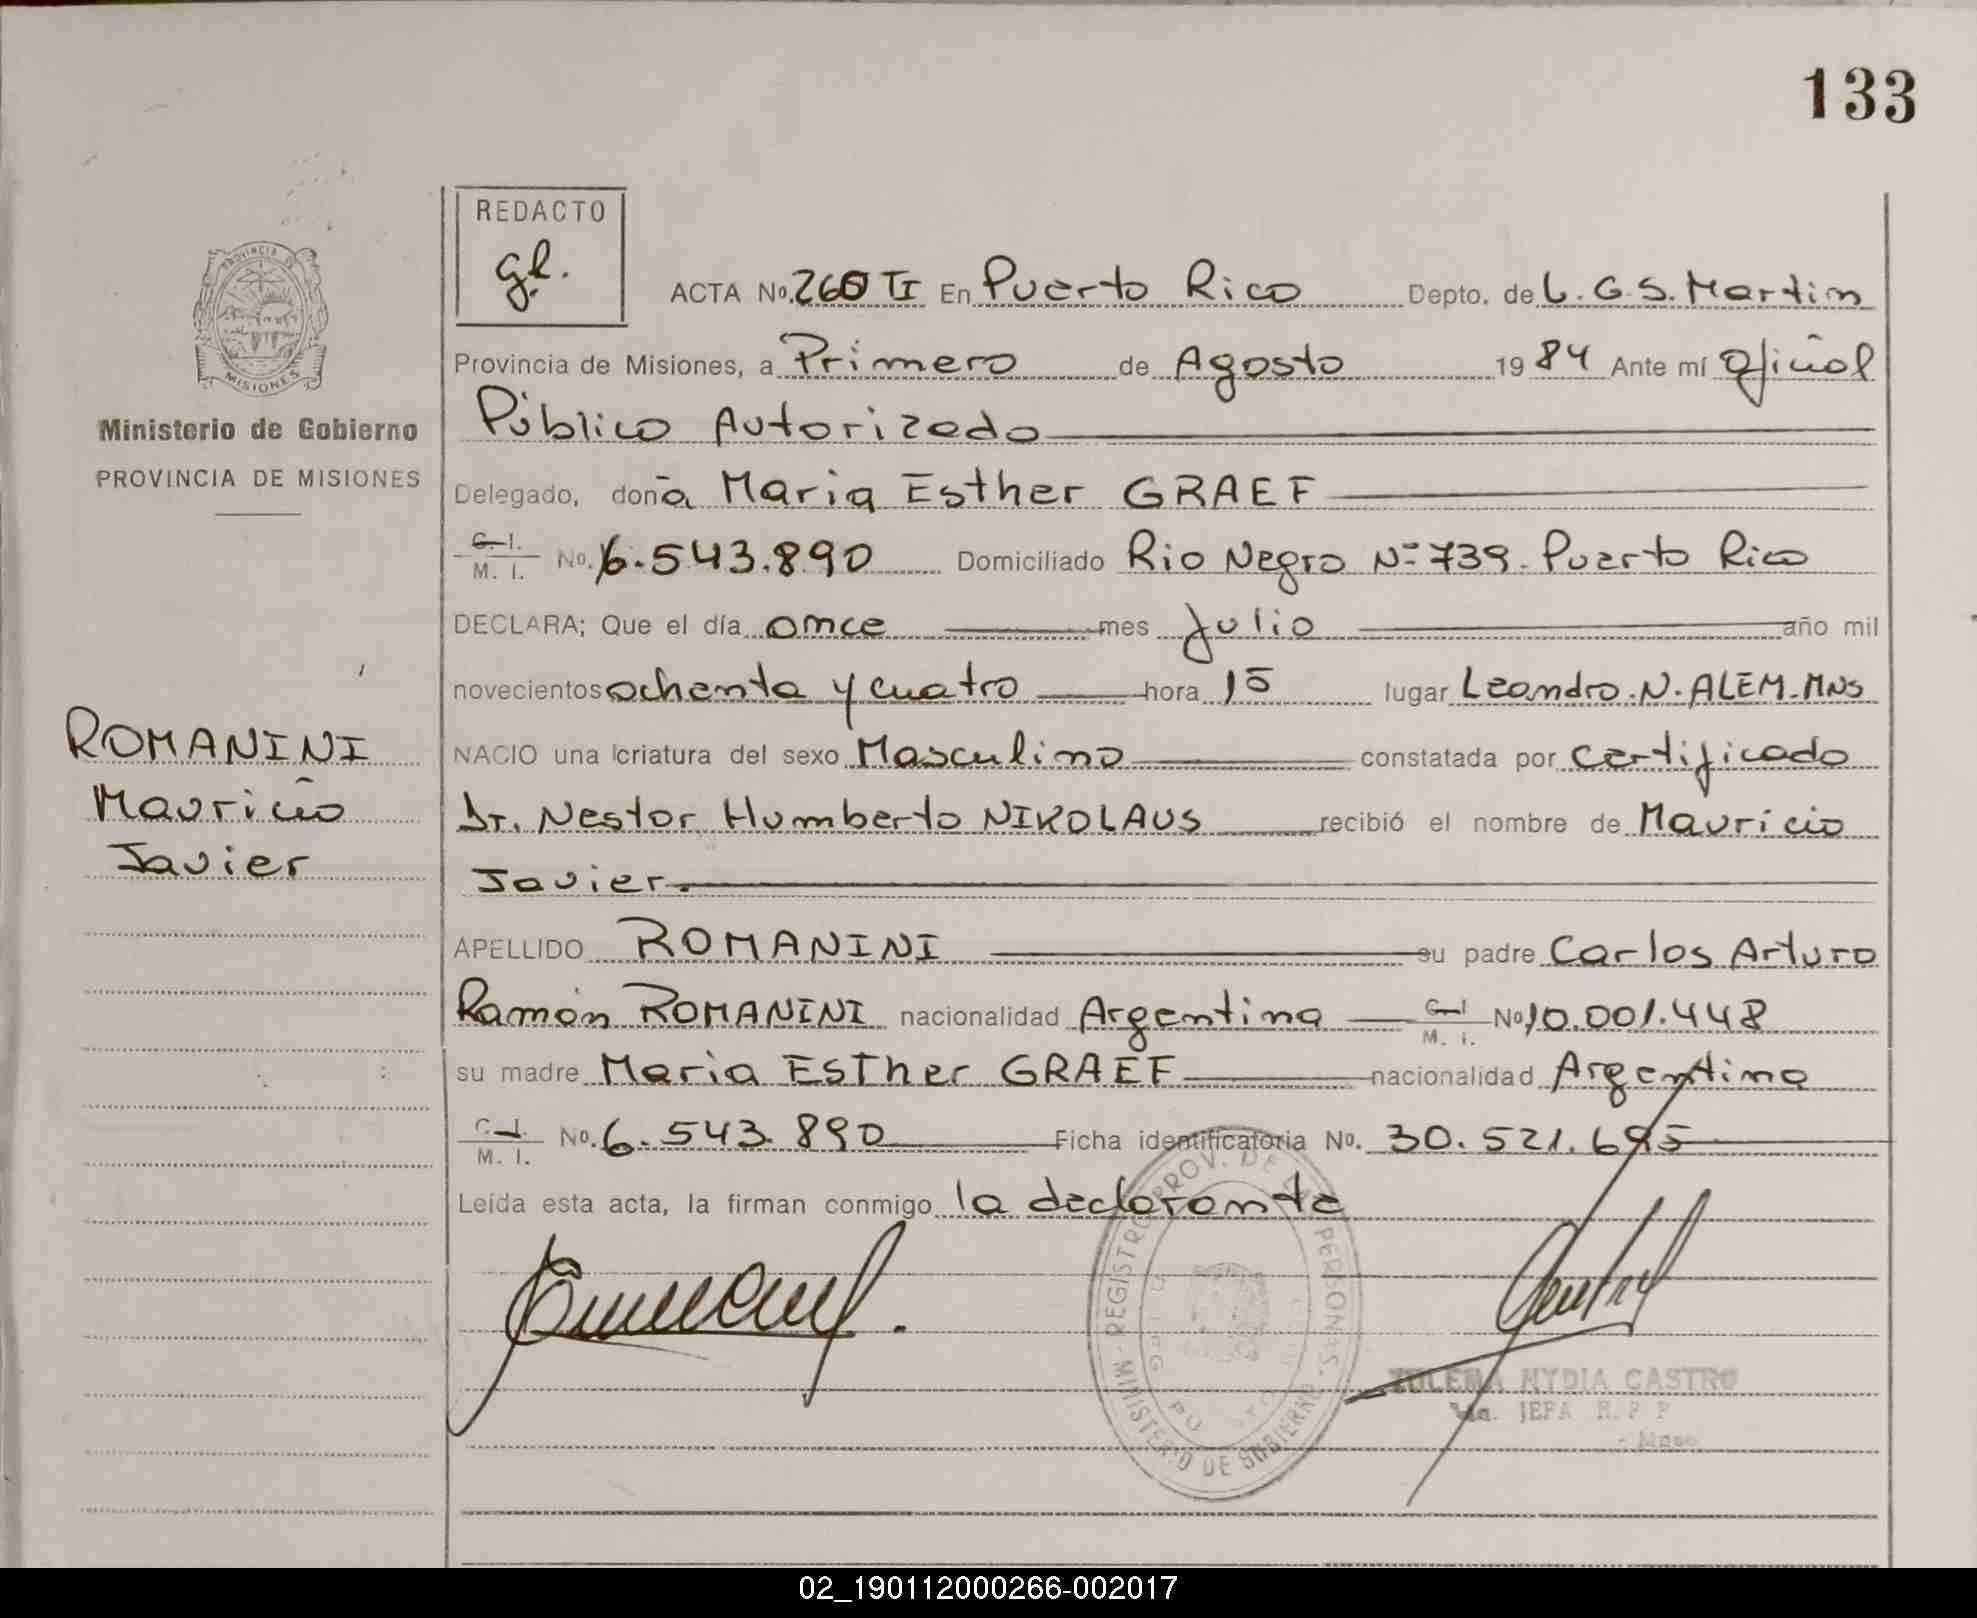 133
REDACTO
gl.
ACTA No. 260 TI En Puerto Rico Depto. de L.G.S. Martin
Provincia de Misiones, a Primero de Agosto 1984 Ante mí Oficial
Público Autorizado
Delegado, doña Maria Esther GRAEF
C. I. M. I. No. 6.543.890 Domiciliado Rio Negro Nº 739. Puerto Rico
DECLARA; Que el día once mes Julio año mil
novecientos ochenta y cuatro hora 15 lugar Leandro. N. ALEM. MNS
NACIO una criatura del sexo Masculino constatada por certificado
Dr. Nestor Humberto NIKOLAUS recibió el nombre de Mauricio
Javier.
APELLIDO ROMANINI su padre Carlos Arturo
Ramón ROMANINI nacionalidad Argentina C. I. M. I. No. 10.001.448
su madre Maria Esther GRAEF nacionalidad Argentina
C. I. M. I. No. 6.543.890 Ficha identificatoria No. 30.521.695
Leída esta acta, la firman conmigo la declarante
PROVINCIA DE
MISIONES
Ministerio de Gobierno
PROVINCIA DE MISIONES
ROMANINI
Mauricio
Javier
REGISTRO PROV. DE LAS PERSONAS - MINISTERIO DE GOBIERNO
NYDIA CASTRO
JEFA R. P. P.
02_190112000266-002017